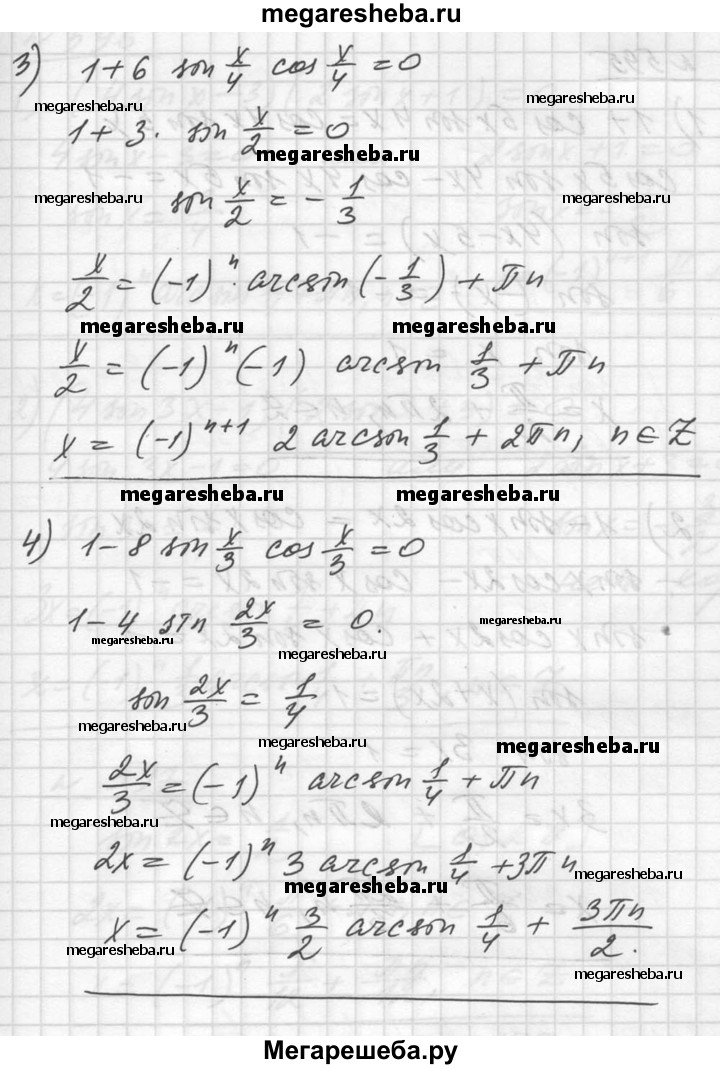 megaresheba.ru
3) 1+6 sin x/4 cos x/4 = 0
megaresheba.ru megaresheba.ru
1+3· sin x/2 = 0
megaresheba.ru
megaresheba.ru sin x/2 = - 1/3 megaresheba.ru
x/2 = (-1)^n · arcsin(-1/3) + πn
megaresheba.ru megaresheba.ru
x/2 = (-1)^n (-1) arcsin 1/3 + πn
x = (-1)^{n+1} 2 arcsin 1/3 + 2πn, n∈Z
megaresheba.ru megaresheba.ru
4) 1-8 sin x/3 cos x/3 = 0
1-4 sin 2x/3 = 0. megaresheba.ru
megaresheba.ru megaresheba.ru
sin 2x/3 = 1/4
megaresheba.ru megaresheba.ru megaresheba.ru
2x/3 = (-1)^n arcsin 1/4 + πn
megaresheba.ru
2x = (-1)^n 3 arcsin 1/4 + 3πn
megaresheba.ru megaresheba.ru
x = (-1)^n 3/2 arcsin 1/4 + 3πn/2.
megaresheba.ru megaresheba.ru
Мегарешеба.ру